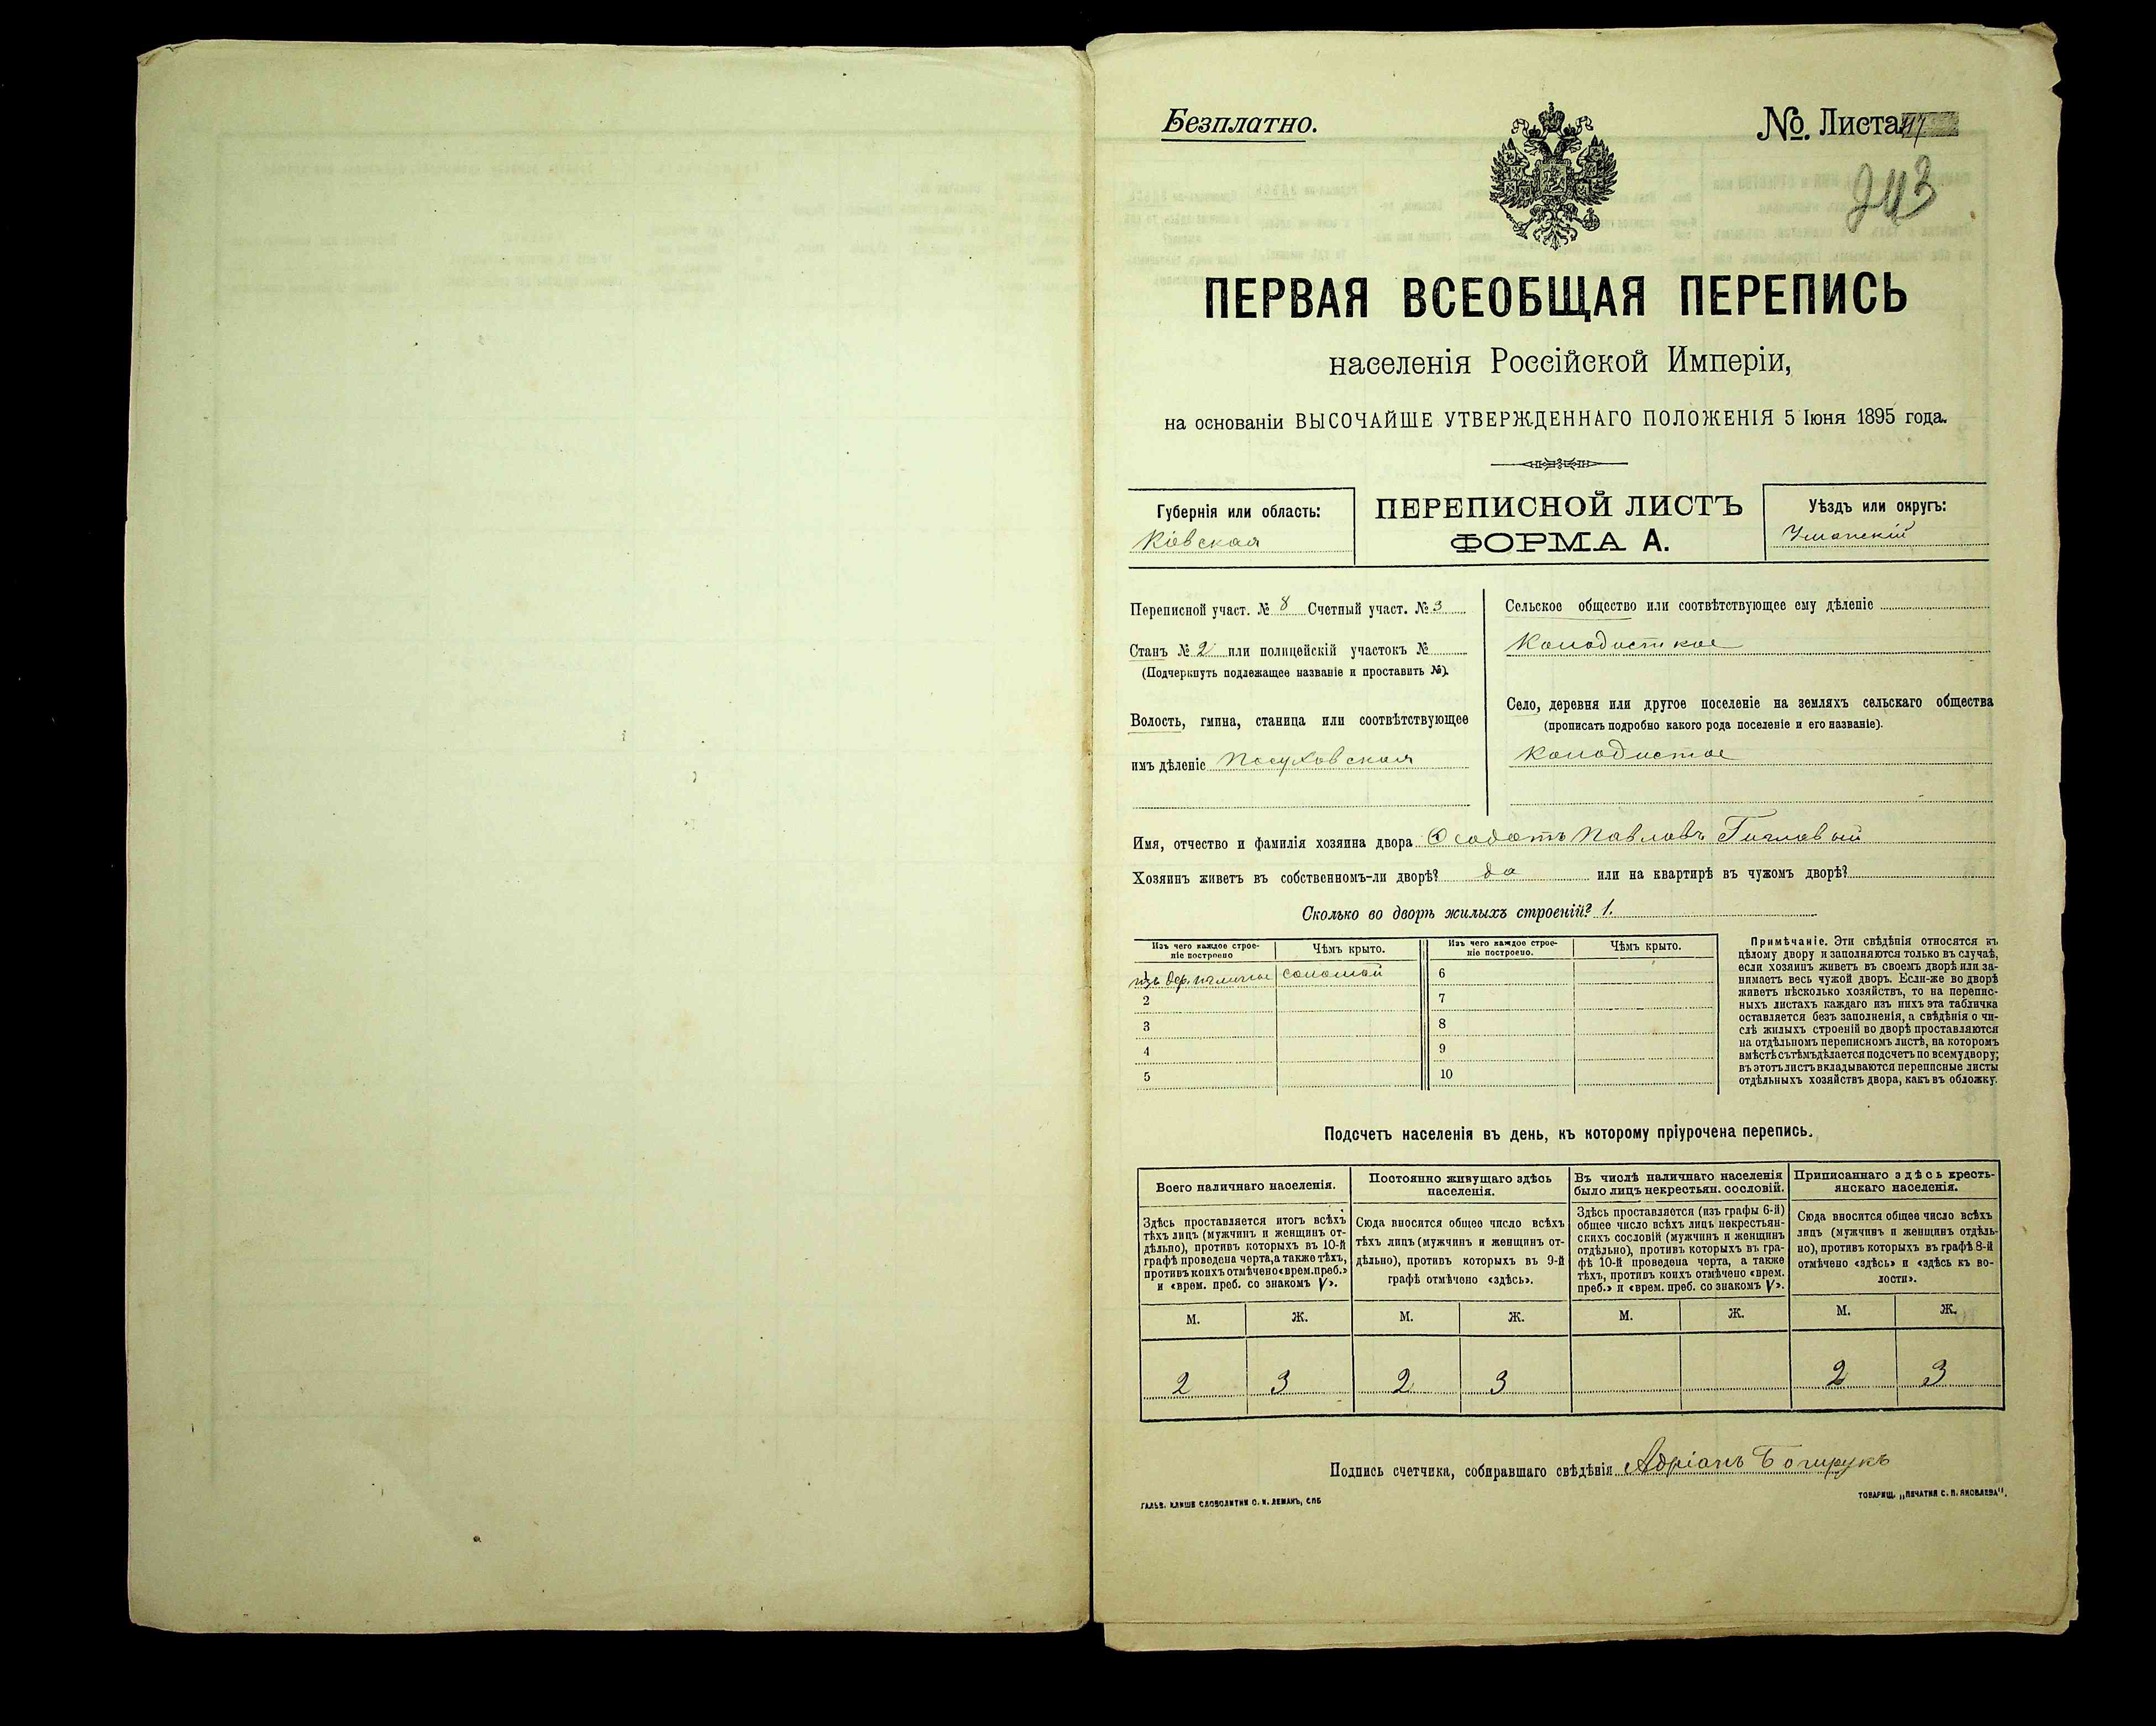 Безплатно.
№. Листа
243
ПЕРВАЯ ВСЕОБЩАЯ ПЕРЕПИСЬ
населенія Россійской Имперіи,
на основаніи ВЫСОЧАЙШЕ УТВЕРЖДЕННАГО ПОЛОЖЕНІЯ 5 Іюня 1895 года.
Губернія или область:
Кіевская
ПЕРЕПИСНОЙ ЛИСТЪ
ФОРМА А.
Уѣздъ или округъ:
Уманскій
Переписной участ. № 8 Счетный участ. № 3
Станъ № 2 или полицейскій участокъ №
(Подчеркнуть подлежащее названіе и проставить №).
Волость, гмина, станица или соотвѣтствующее
имъ дѣленіе Посуховская
Сельское общество или соотвѣтствующее ему дѣленіе
Колодисткое
Село, деревня или другое поселеніе на земляхъ сельскаго общества
(прописать подробно какого рода поселеніе и его названіе).
Колодистое
Имя, отчество и фамилія хозяина двора Ѳеодотъ Павловъ
Хозяинъ живетъ въ собственномъ-ли дворѣ? да или на квартирѣ въ чужомъ дворѣ?
Сколько во дворѣ жилыхъ строеній? 1.
Изъ чего каждое строе-
ніе построено
Чѣмъ крыто.
Изъ чего каждое строе-
ніе построено.
Чѣмъ крыто.
изъ дер. и глины соломой
6
2
7
3
8
4
9
5
10
Примѣчаніе. Эти свѣдѣнія относятся къ
цѣлому двору и заполняются только въ случаѣ,
если хозяинъ живетъ въ своемъ дворѣ или за-
нимаетъ весь чужой дворъ. Если-же во дворѣ
живетъ нѣсколько хозяйствъ, то на перепис-
ныхъ листахъ каждаго изъ нихъ эта табличка
оставляется безъ заполненія, а свѣдѣнія о чи-
слѣ жилыхъ строеній во дворѣ проставляются
на отдѣльномъ переписномъ листѣ, на которомъ
вмѣстѣ съ тѣмъ дѣлается подсчетъ по всему двору;
въ этотъ листъ вкладываются переписные листы
отдѣльныхъ хозяйствъ двора, какъ въ обложку.
Подсчетъ населенія въ день, къ которому пріурочена перепись.
Всего наличнаго населенія.
Здѣсь проставляется итогъ всѣхъ
тѣхъ лицъ (мужчинъ и женщинъ от-
дѣльно), противъ которыхъ въ 10-й
графѣ проведена черта, а также тѣхъ,
противъ коихъ отмѣчено «врем. преб.»
и «врем. преб. со знакомъ V».
Постоянно живущаго здѣсь
населенія.
Сюда вносится общее число всѣхъ
тѣхъ лицъ (мужчинъ и женщинъ от-
дѣльно), противъ которыхъ въ 9-й
графѣ отмѣчено «здѣсь».
Въ числѣ наличнаго населенія
было лицъ некрестьян. сословій.
Здѣсь проставляется (изъ графы 6-й)
общее число всѣхъ лицъ некрестьян-
скихъ сословій (мужчинъ и женщинъ
отдѣльно), противъ которыхъ въ гра-
фѣ 10-й проведена черта, а также
тѣхъ, противъ коихъ отмѣчено «врем.
преб.» и «врем. преб. со знакомъ V».
Приписаннаго здѣсь кресть-
янскаго населенія.
Сюда вносится общее число всѣхъ
лицъ (мужчинъ и женщинъ отдѣль-
но), противъ которыхъ въ графѣ 8-й
отмѣчено «здѣсь» и «здѣсь къ во-
лости».
М. Ж. М. Ж. М. Ж. М. Ж.
2 3 2 3 2 3
Подпись счетчика, собиравшаго свѣдѣнія Адріанъ
ГАЛЬВ. КЛИШЕ СЛОВОЛИТНИ О. И. ЛЕМАНЪ, СПБ
ТОВАРИЩ. „ПЕЧАТНЯ С. П. ЯКОВЛЕВА".